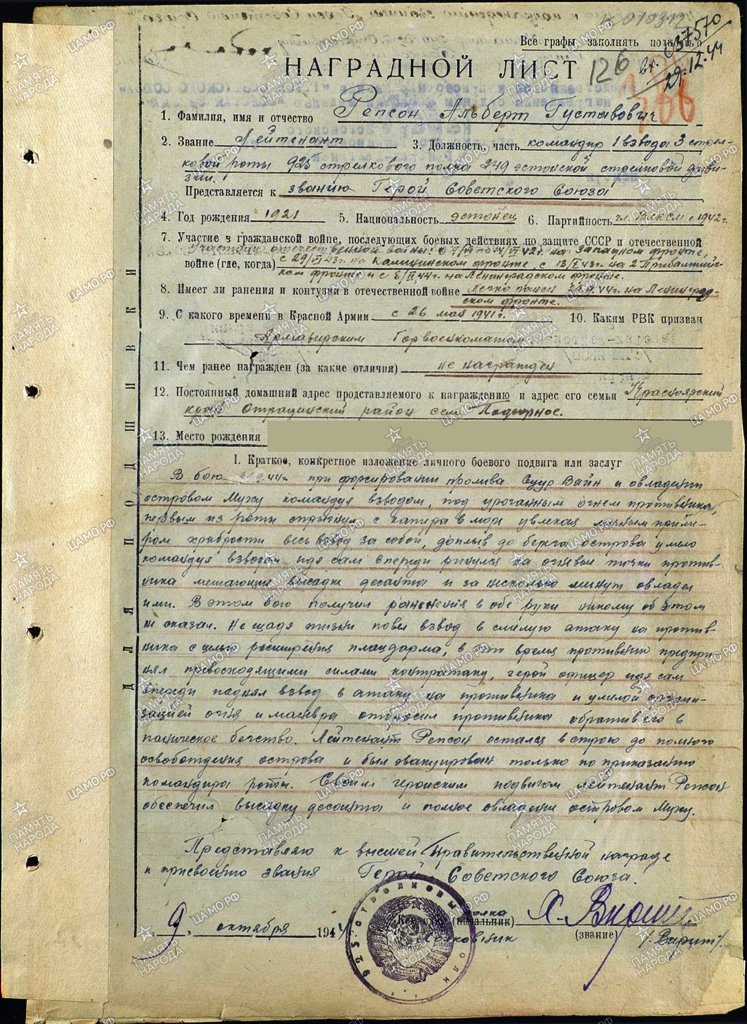 Все графы заполнять
вх. 037570
29.12.44
126
НАГРАДНОЙ ЛИСТ
1. Фамилия, имя и отчество Репсон Альберт Густавович
2. Звание Лейтенант 3. Должность, часть командир 1 взвода 3 стрел-
ковой роты 925 стрелкового полка 249 эстонской стрелковой диви-
зии.
Представляется к званию Герой Советского Союза
4. Год рождения 1921 5. Национальность эстонец 6. Партийность чл. ВЛКСМ с 1942 г.
7. Участие в гражданской войне, последующих боевых действиях по защите СССР и отечественной
Участник отечественной войны: на Западном фронте,
войне (где, когда) на Калининском фронте, на 2 Прибалтий-
ском фронте и на Ленинградском фронте.
8. Имеет ли ранения и контузии в отечественной войне легко ранен на Ленинград-
ском фронте.
9. С какого времени в Красной Армии с 26 мая 1941 г. 10. Каким РВК призван
Армавирским Горвоенкоматом
11. Чем ранее награжден (за какие отличия) не награжден
12. Постоянный домашний адрес представляемого к награждению и адрес его семьи Красноярский
край район село Подгорное.
13. Место рождения
I. Краткое, конкретное изложение личного боевого подвига или заслуг
В бою при форсировании пролива Вяйн и овладении
островом Муху командуя взводом, под ураганным огнем противника,
первым из роты спрыгнул с катера в море увлекая личным приме-
ром храбрости весь взвод за собой, доплыв до берега острова умело
командуя взводом, идя сам впереди ринулся на огневые точки против-
ника мешающие высадке десанта и за несколько минут овладел
ими. В этом бою получил ранения в обе руки никому об этом
не сказал. Не щадя жизни повел взвод в смелую атаку на против-
ника с целью расширения плацдарма, в это время противник предпри-
нял превосходящими силами контратаку, герой офицер идя сам
впереди поднял взвод в атаку на противника и умелой органи-
зацией огня и маневра отбросил противника обратив его в
паническое бегство. Лейтенант Репсон остался в строю до полного
освобождения острова и был эвакуирован только по приказанию
командира роты. Своим геройским подвигом лейтенант Репсон
обеспечил высадку десанта и полное овладение островом Муху.
Представляю к высшей Правительственной награде
к присвоению звания Герой Советского Союза.
полка
Командир (начальник)
9 октября 1944 Полковник (звание)
ДЛЯ ПОДШИВКИ
ПАМЯТЬ НАРОДА
ЦАМО.РФ